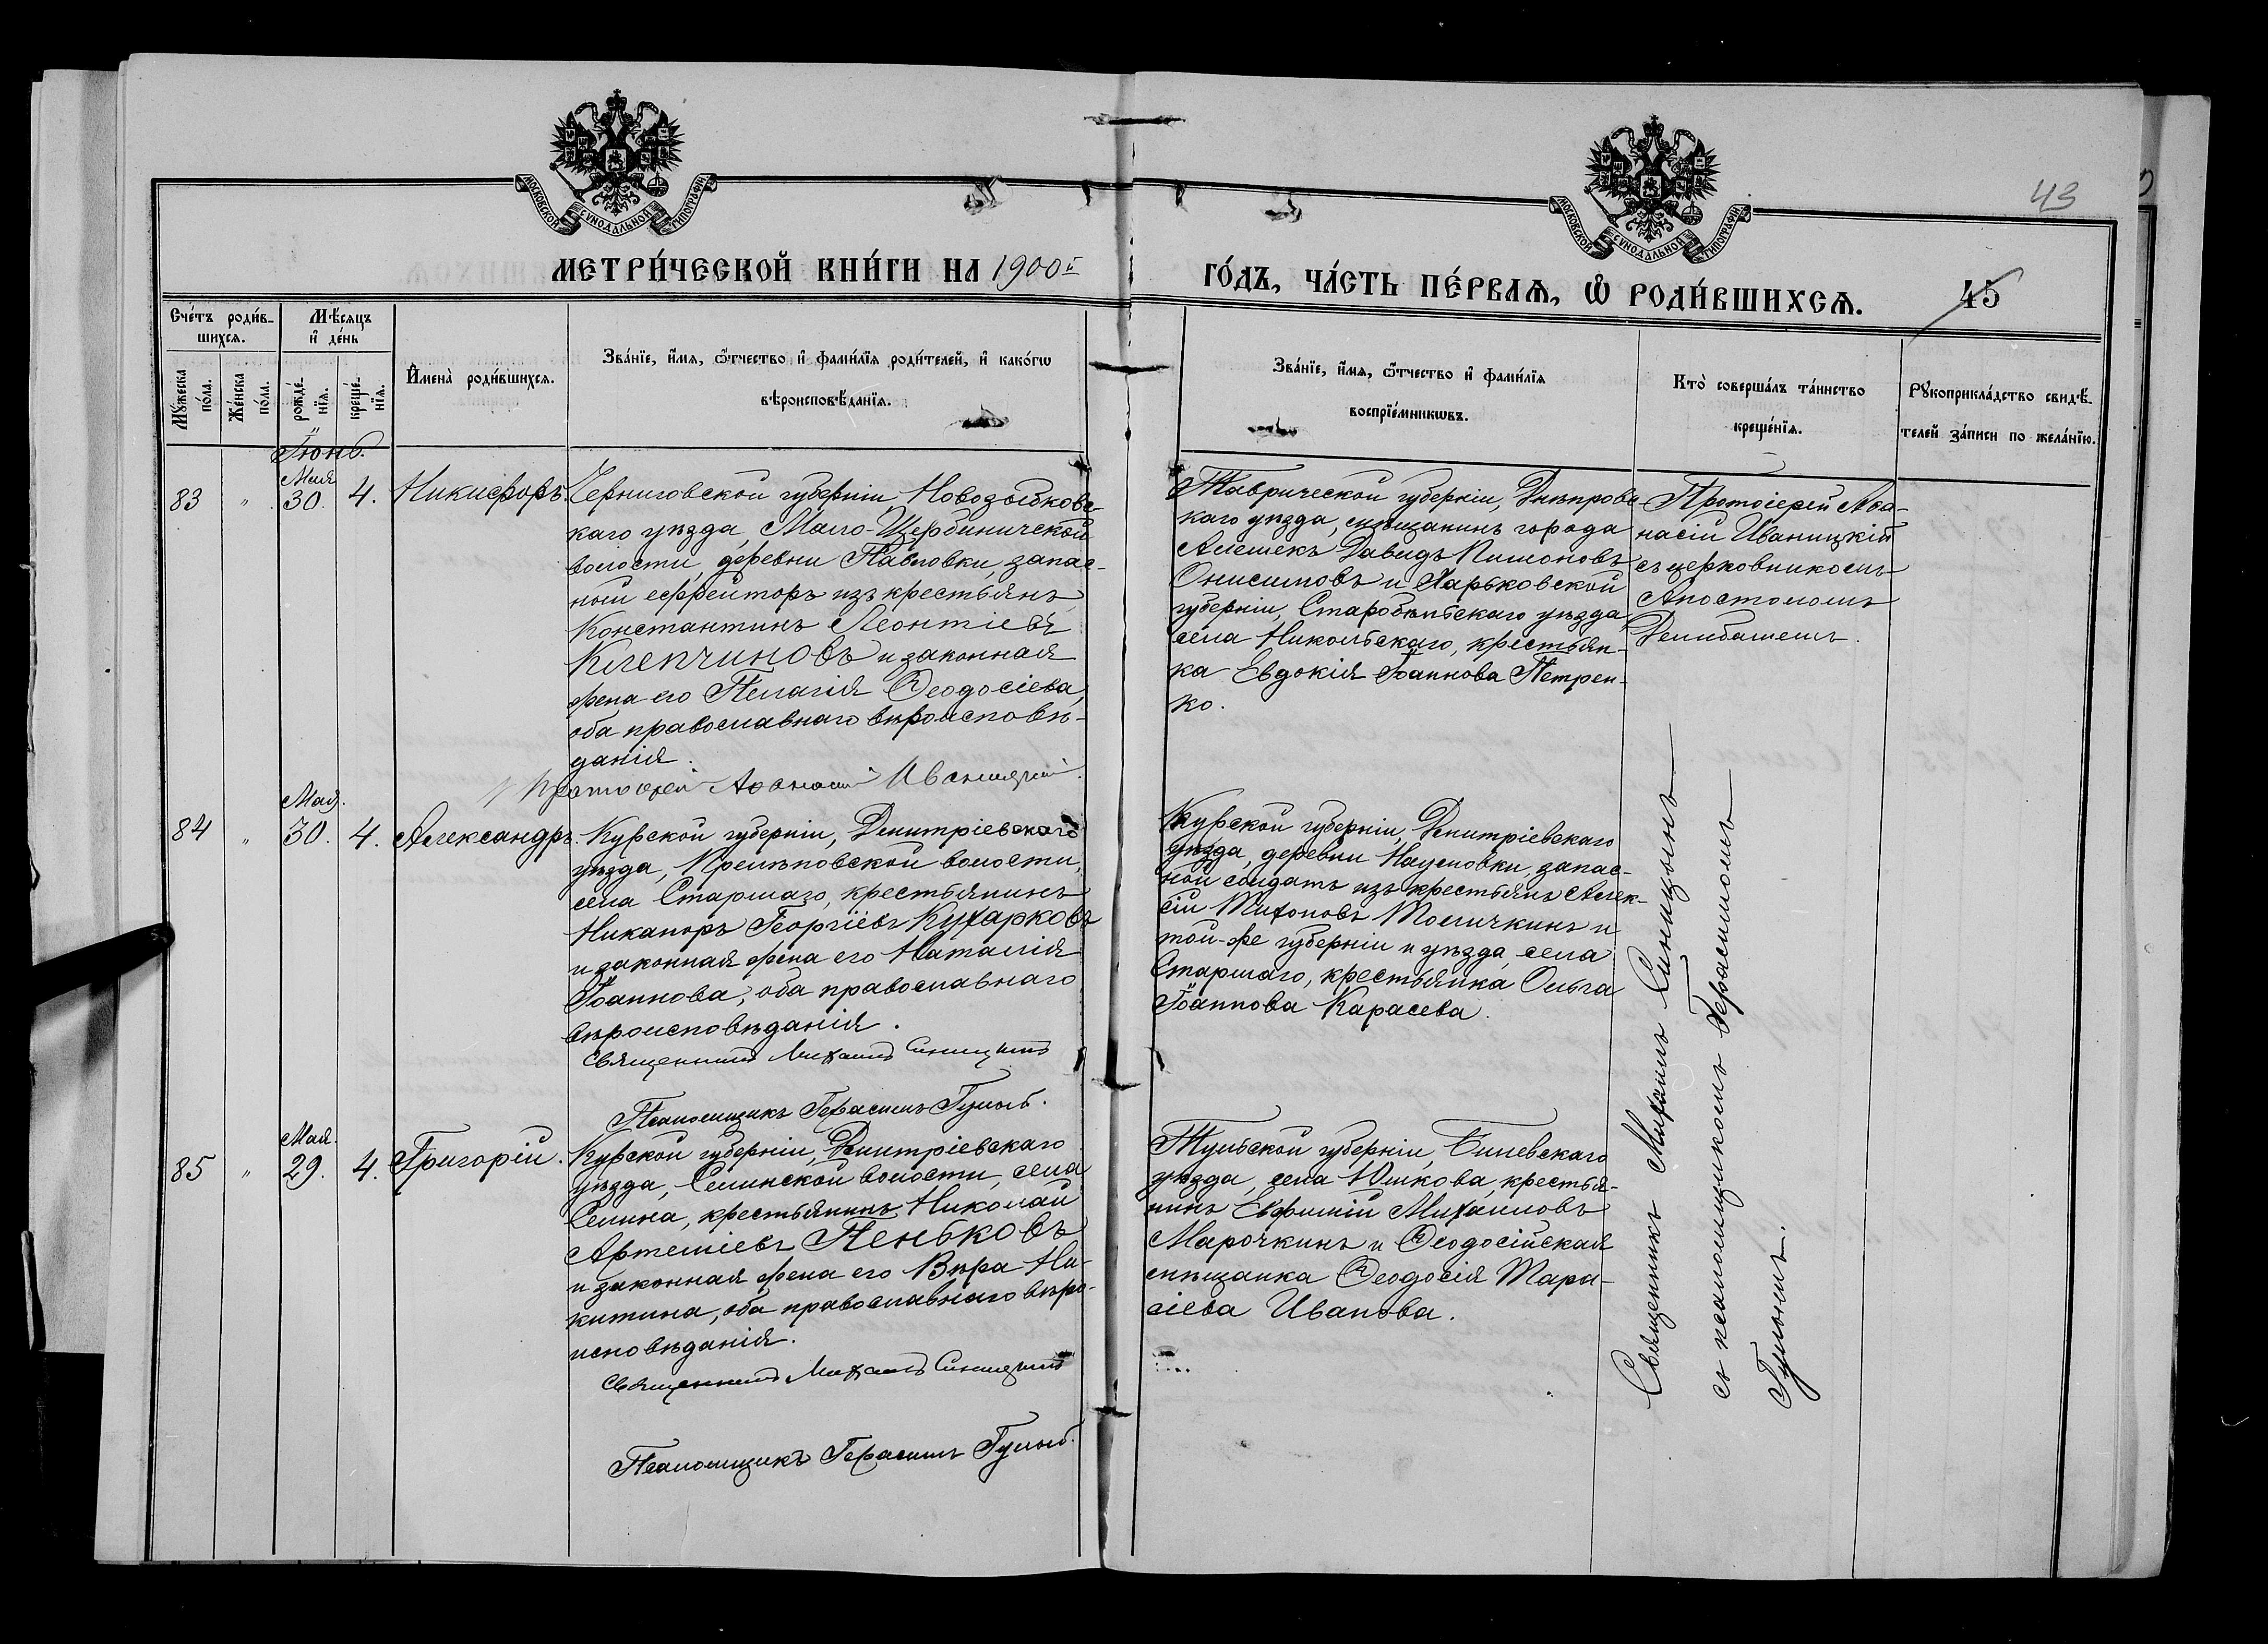 МОСКОВСКОЙ СѴНОДАЛЬНОЙ ТИПОГРАФІИ
МОСКОВСКОЙ СѴНОДАЛЬНОЙ ТИПОГРАФІИ
43
МЕТРИ́ЧЕСКОЙ КНИ́ГИ НА 1900й
ГО́ДЪ, ЧА́СТЬ ПЕ́РВАѦ, Ѡ҆ РОДИ́ВШИХСѦ.
45
Сче́тъ роди́в-
шихсѧ.
Мѣ́сѧцъ
и҆ де́нь
Мꙋ́жеска по́ла.
Же́нска по́ла.
рожде́-
нїѧ.
креще́-
нїѧ.
И҆мена̀ роди́вшихсѧ.
Зва́нїе, и҆́мѧ, ѻ҆́тчество и҆ фами́лїѧ роди́телей, и҆ како́гѡ
вѣроисповѣ́данїѧ.
Зва́нїе, и҆́мѧ, ѻ҆́тчество и҆ фами́лїѧ
воспрїе́мникѡвъ.
Кто̀ соверша́лъ та́инство
креще́нїѧ.
Рꙋкоприкла́дство свидѣ́-
телей за́писи по жела́нїю.
Іюнь.
83 " Мая 30. 4. Никифоръ.
Черниговской губерніи Новозыбковс-
каго уѣзда, Мало-Щербиничской
волости, деревни Павловки, запас-
ной ефрейторъ изъ крестьянъ
Константинъ Леонтіевъ
Клепчиновъ и законная
жена его Пелагія Ѳеодосіева,
оба православнаго вѣроисповѣ-
данія.
Протоіерей Аѳанасій Иваницкій.
Таврической губерніи, Днѣпровс-
каго уѣзда, мѣщанинъ города
Алешекъ Давидъ Пимоновъ
Онисимовъ и Харьковской
губерніи, Старобѣльскаго уѣзда,
села Никольскаго, крестьян-
ка Евдокія Іоаннова Петрен-
ко.
Протоіерей Аѳа-
насій Иваницкій
съ церковникомъ
Апостоломъ
Демибашемъ.
84 " Мая. 30. 4. Александръ.
Курской губерніи, Дмитріевскаго
уѣзда, Кремѣновской волости,
села Старшаго, крестьянинъ
Никаноръ Георгіевъ Кухарковъ
и законная жена его Наталія
Іоаннова, оба православнаго
вѣроисповѣданія.
Священникъ Михаилъ Синицынъ
Псаломщикъ Герасимъ Гунько.
Курской губерніи, Дмитріевскаго
уѣзда, деревни Наумовки, запас-
ной солдатъ изъ крестьянъ Алек-
сій Тихоновъ Толичкинъ и
той-же губерніи и уѣзда, села
Старшаго, крестьянка Ольга
Іоаннова Карасева.
85 " Мая. 29. 4. Григорій.
Курской губерніи, Дмитріевскаго
уѣзда, Селинской волости, села
Селина, крестьянинъ Николай
Артеміевъ Пеньковъ
и законная жена его Вѣра Ни-
китина, оба православнаго вѣро-
исповѣданія.
Священникъ Михаилъ Синицынъ
Псаломщикъ Герасимъ
Тульской губерніи, Бѣлевскаго
уѣзда, села Юшкова, крестья-
нинъ Евфимій Михаиловъ
Марочкинъ и Ѳеодосійская
мѣщанка Ѳеодосія Тара-
сіева Иванова.
Священникъ Михаилъ Синицынъ
съ псаломщикомъ Герасимомъ